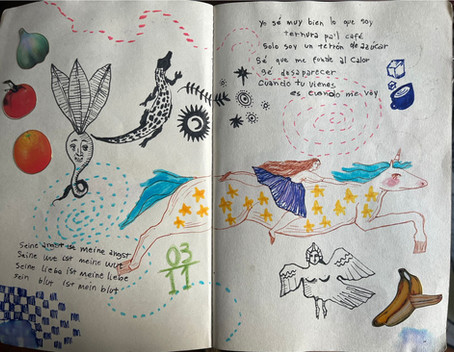 Seine angst ist meine angst
Seine wut ist meine wut
Seine liebe ist meine liebe
Sein blut ist mein blut
03
11
Yo sé muy bien lo que soy
ternura pa'l café
Solo soy un terrón de azúcar
Sé que me funde al calor
Sé desaparecer
Cuando tu vienes
es cuando me voy